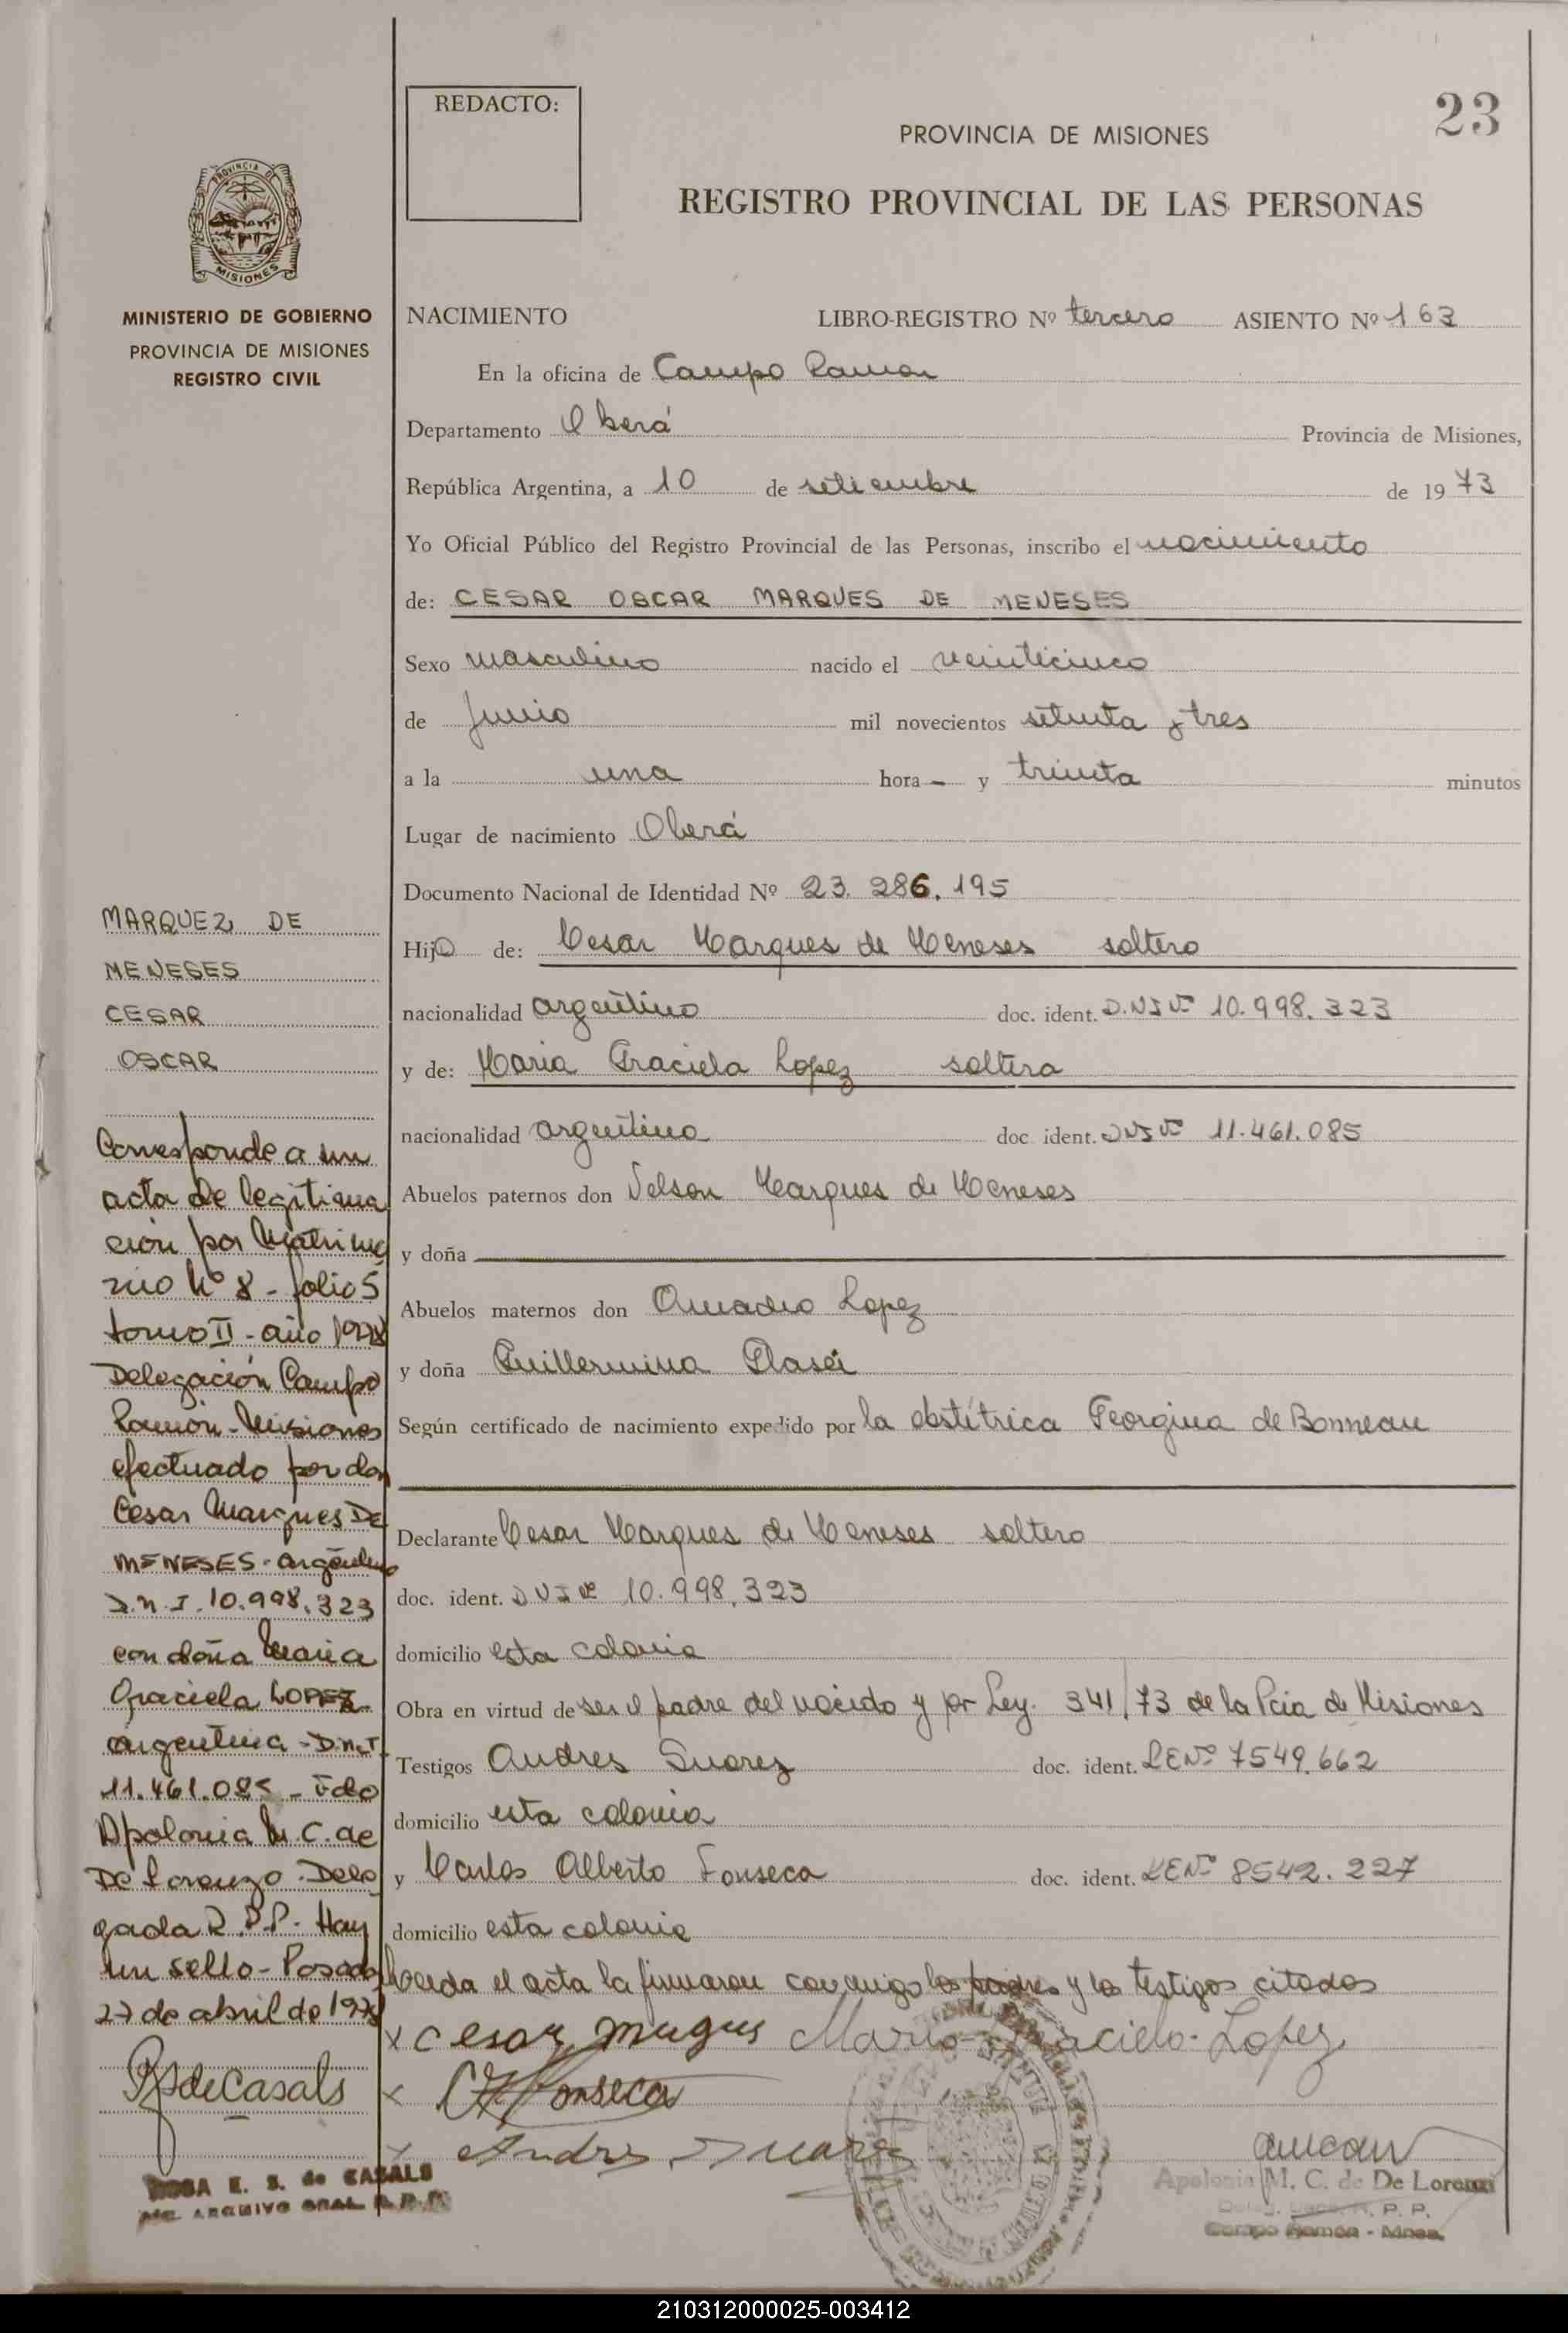 REDACTO:
23
PROVINCIA DE MISIONES
REGISTRO PROVINCIAL DE LAS PERSONAS
PROVINCIA DE
MISIONES
MINISTERIO DE GOBIERNO
PROVINCIA DE MISIONES
REGISTRO CIVIL
NACIMIENTO LIBRO-REGISTRO Nº tercero ASIENTO Nº 163
En la oficina de Campo Ramon
Departamento Oberá Provincia de Misiones,
República Argentina, a 10 de setiembre de 1973
Yo Oficial Público del Registro Provincial de las Personas, inscribo el nacimiento
de: CESAR OSCAR MARQUES DE MENESES
Sexo masculino nacido el veinticinco
de Junio mil novecientos setenta y tres
a la una hora - y treinta minutos
Lugar de nacimiento Oberá
Documento Nacional de Identidad Nº 23.286.195
Hijo de: Cesar Marques de Meneses soltero
nacionalidad argentino doc. ident. D.N.I Nº 10.998.323
y de: Maria Graciela Lopez soltera
nacionalidad argentina doc. ident. DNI Nº 11.461.085
Abuelos paternos don Nelson Marques de Meneses
y doña
Abuelos maternos don Amadeo Lopez
y doña Guillermina
Según certificado de nacimiento expedido por la obstétrica Georgina de Bonneau
Declarante Cesar Marques de Meneses soltero
doc. ident. DNI Nº 10.998.323
domicilio esta colonia
Obra en virtud de ser el padre del nacido y por Ley. 341/73 de la Pcia de Misiones
Testigos Andres Suarez doc. ident. LE Nº 7549.662
domicilio esta colonia
y Carlos Alberto Fonseca doc. ident. LE Nº 8542.227
domicilio esta colonia
el acta la firmaron conmigo los padres y los testigos citados
x Cesar Maria Graciela Lopez
x Fonseca
x Andres Suarez
Apolonia M. C. de De Lorenzo
R. P. P.
Campo Ramón - Mnes.
MARQUEZ DE
MENESES
CESAR
OSCAR
Corresponde a un
acta de legitima
ción por Matrimo
nio Nº 8 - folio 5
tomo II - año 1978
Delegación Campo
Ramón - Misiones
efectuado por don
Cesar Marques DE
MENESES - argentino
D.N.I. 10.998.323
con doña Maria
Graciela LOPEZ -
argentina - D.N.I
11.461.085 - Fdo
Apolonia M. C. de
De Lorenzo - Dele
gada R.P.P. - Hay
un sello - Posadas
27 de abril de 1978
RSdeCasals
ROSA E. S. de CASALS
ARCHIVO GRAL R.P.P.
210312000025-003412